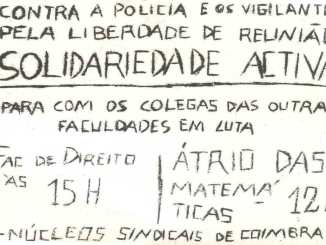 CONTRA A POLICIA E OS VIGILANT
PELA LIBERDADE DE REUNIÃ
SOLIDARIEDADE ACTIVA
PARA COM OS COLEGAS DAS OUTRA
FACULDADES EM LUTA
FAC DE DIREITO
ÀS 15H
ÁTRIO DAS
MATEMÁ
TICAS 12
-NÚCLEOS SINDICAIS DE COIMBRA